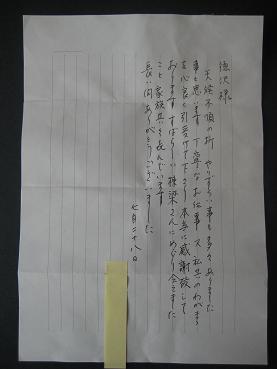 徳沢様
天候不順の折 やりずらい事も多々ありました
事と思います 丁寧なお仕事 又、私共のわがまま
を心良く引受けて下さり本当に感謝致して
おります すばらしい棟梁さんにめぐり会えました
こと家族共々喜んでいます
長い間ありがとうございました
七月二十八日